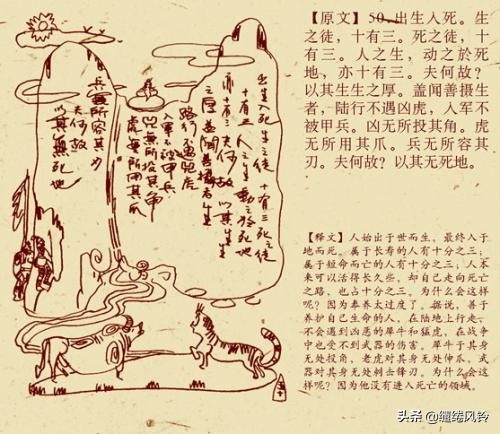 出生入死生之徒十有三死之徒
十有三人之生動之於死地
亦十有三夫何故以其生生
之厚蓋闻善摄生者
陸行不遇兕虎
入軍不被甲兵
兕無所投其角
虎無所用其爪
兵無所容其刃
夫何故
以其無死地
【原文】50.出生人死。生
之徒，十有三。死之徒，十
有三。人之生，动之於死
地，亦十有三。夫何故？
以其生生之厚。盖闻善摄生
者，陆行不遇凶虎，人军不
被甲兵。凶无所投其角。虎
无所用其爪。兵无所容其
刃。夫何故？以其无死地。
【释文】人始出于世而生，最终入于
地而死。属于长寿的人有十分之三；
属于短命而亡的人有十分之三；人本
来可以活得长久些，却自己走向死亡
之路，也占十分之三。为什么会这样
呢？因为奉养太过度了。据说，善于
养护自己生命的人，在陆地上行走，
不会遇到凶恶的犀牛和猛虎，在战争
中也受不到武器的伤害。犀牛于其身
无处投角，老虎对其身无处伸爪，武
器对其身无处刺击锋刃。为什么会这
样呢？因为他没有进入死亡的领域。
头条 @缠绻风铃